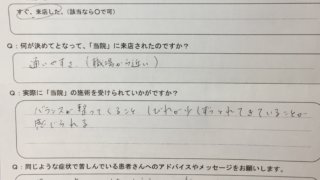 すぐ、来店した。(該当なら〇で可)
Q：何が決めてとなって、「当院」に来店されたのですか？
通いやすさ（職場から近い）
Q：実際に「当院」の施術を受けられていかがですか？
バランスが整ってくること しびれが少しずつとれてきていることが
感じられる
Q：同じような症状で苦しんでいる患者さんへのアドバイスやメッセージをお願いします。